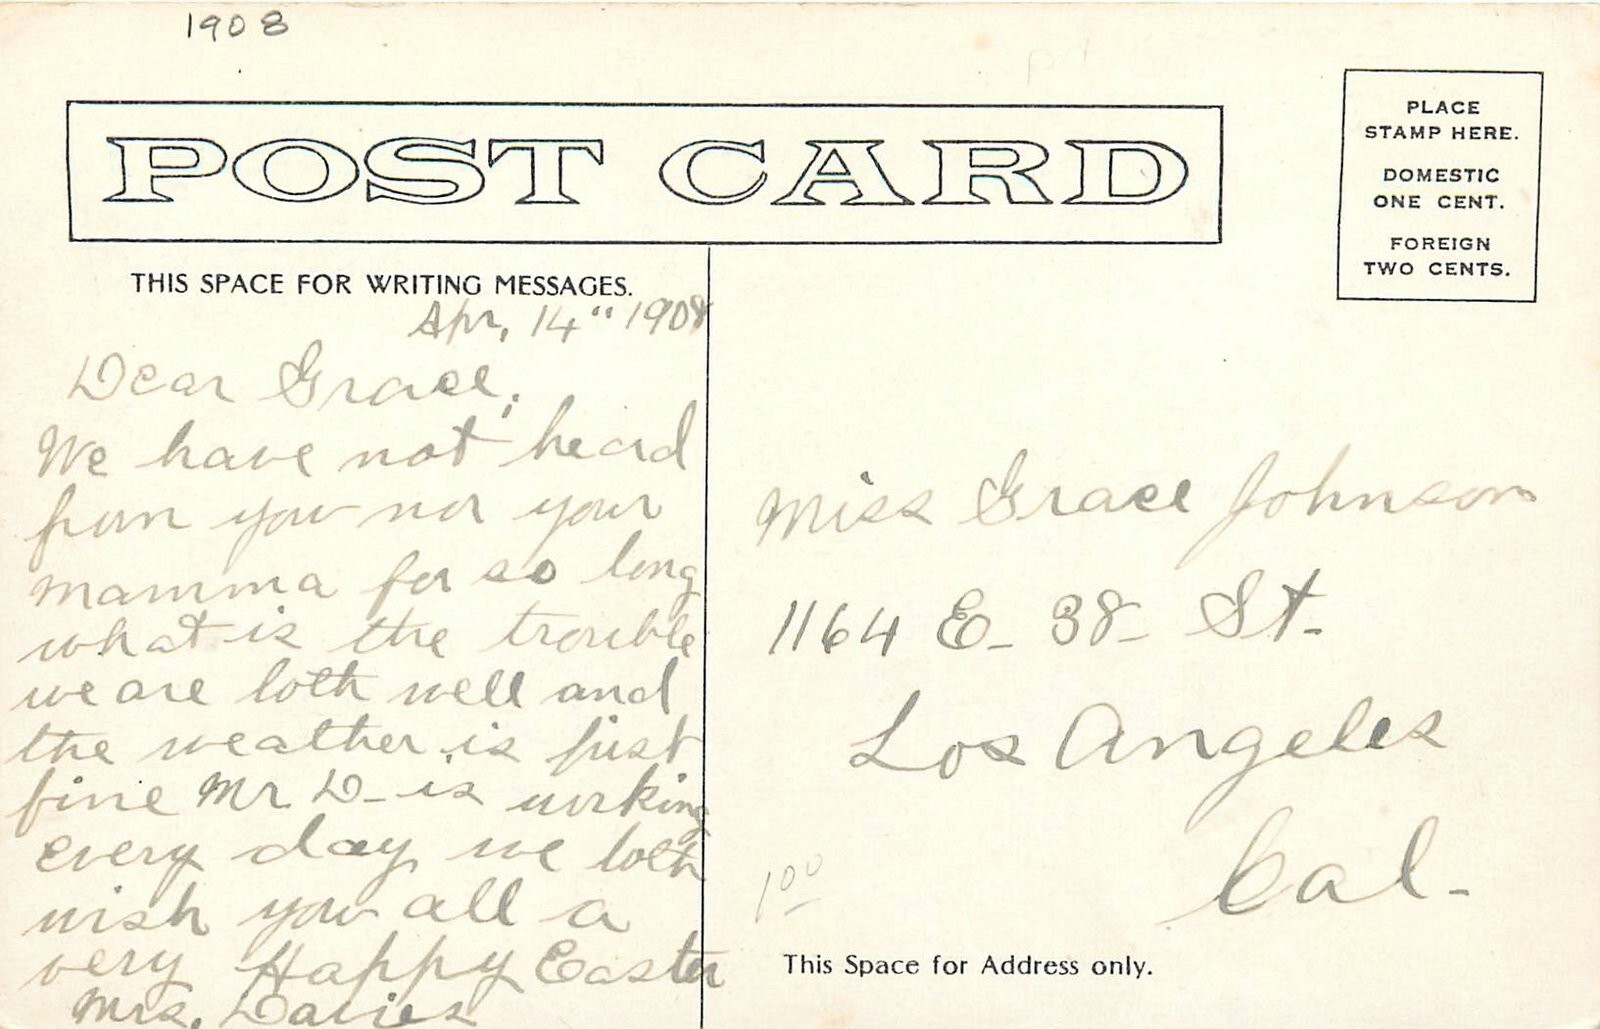 1908
POST CARD
PLACE
STAMP HERE.
DOMESTIC
ONE CENT.
FOREIGN
TWO CENTS.
THIS SPACE FOR WRITING MESSAGES.
Apr, 14" 1908
Dear Grace,
We have not heard
from you nor your
mamma for so long
what is the trouble
we are both well and
the weather is just
fine Mr D- is working
every day we both
wish you all a
very Happy Easter
Mrs. Davies
Miss Grace Johnson
1164 E- 38- St-
Los Angeles
Cal-
1 00
This Space for Address only.